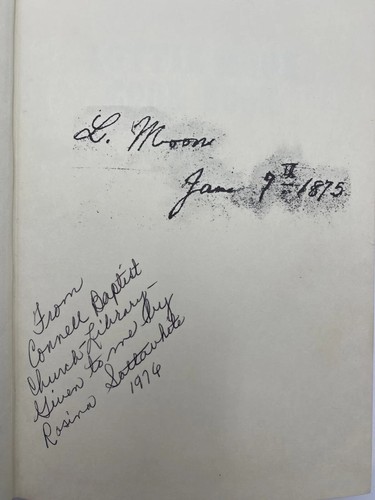 L. Moon
Jan 7th 1875
From
Connell Baptist
Church Library -
Given to me by
Rosina Sattawhite
1976